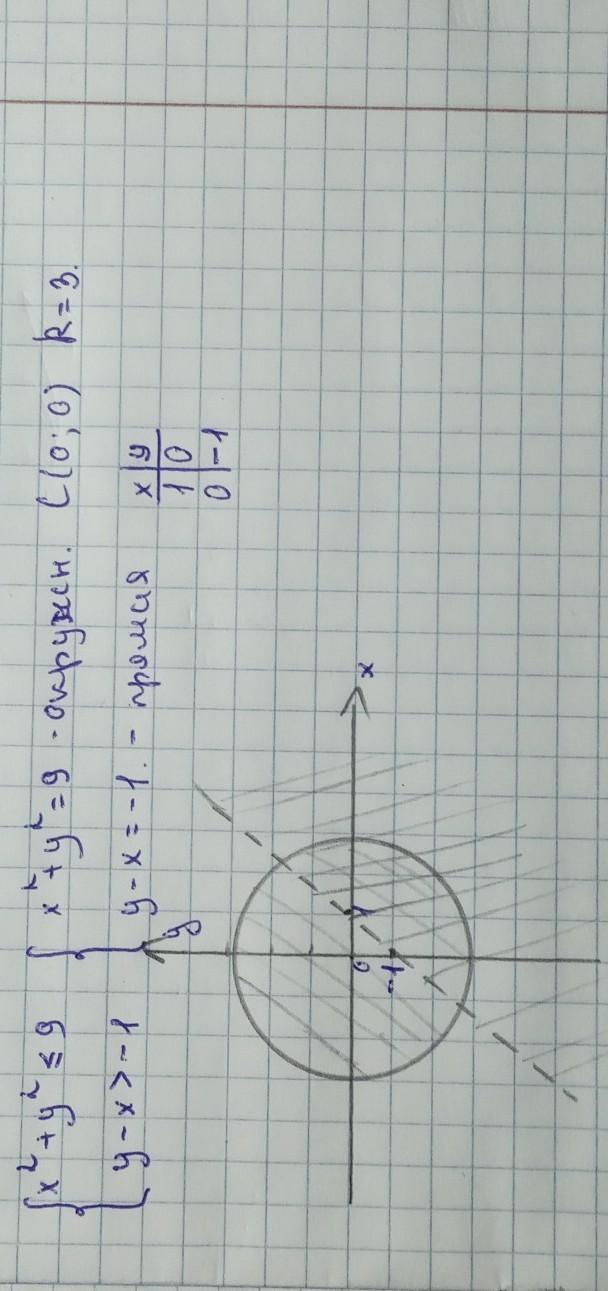 { x² + y² ≤ 9 { x² + y² = 9 - окружн. C(0; 0) R = 3.
y - x > -1 y - x = -1. - прямая
x | y
1 | 0
0 | -1
y
x
0 1
-1